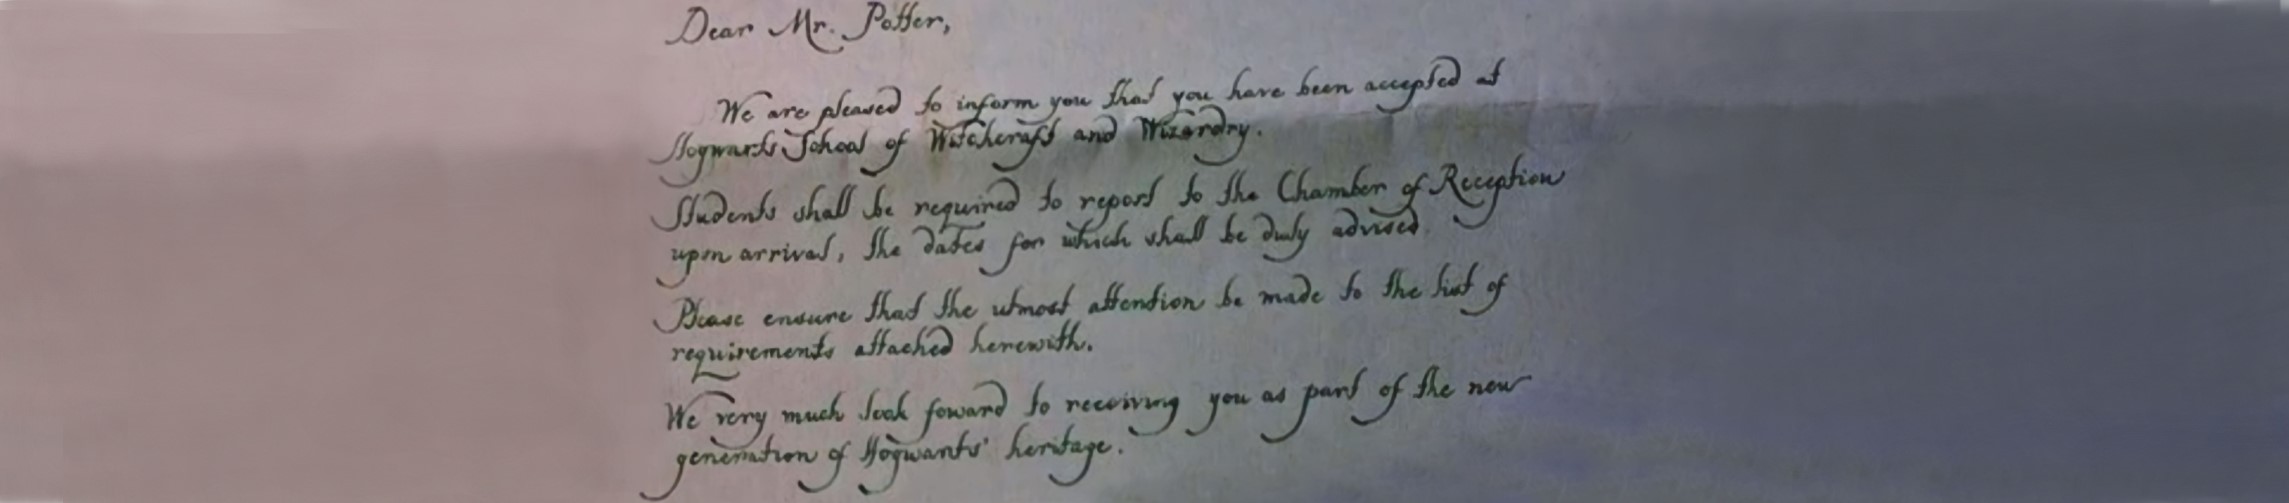 Dear Mr. Potter,
We are pleased to inform you that you have been accepted at
Hogwarts School of Witchcraft and Wizardry.
Students shall be required to report to the Chamber of Reception
upon arrival, the dates for which shall be duly advised.
Please ensure that the utmost attention be made to the list of
requirements attached herewith.
We very much look foward to receiving you as part of the new
generation of Hogwarts' heritage.